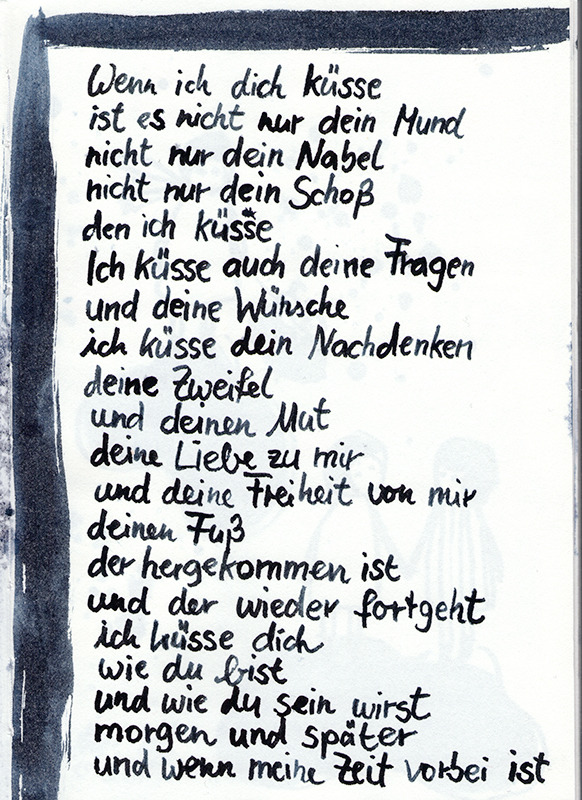 Wenn ich dich küsse
ist es nicht nur dein Mund
nicht nur dein Nabel
nicht nur dein Schoß
den ich küsse
Ich küsse auch deine Fragen
und deine Wünsche
ich küsse dein Nachdenken
deine Zweifel
und deinen Mut
deine Liebe zu mir
und deine Freiheit von mir
deinen Fuß
der hergekommen ist
und der wieder fortgeht
ich küsse dich
wie du bist
und wie du sein wirst
morgen und später
und wenn meine Zeit vorbei ist